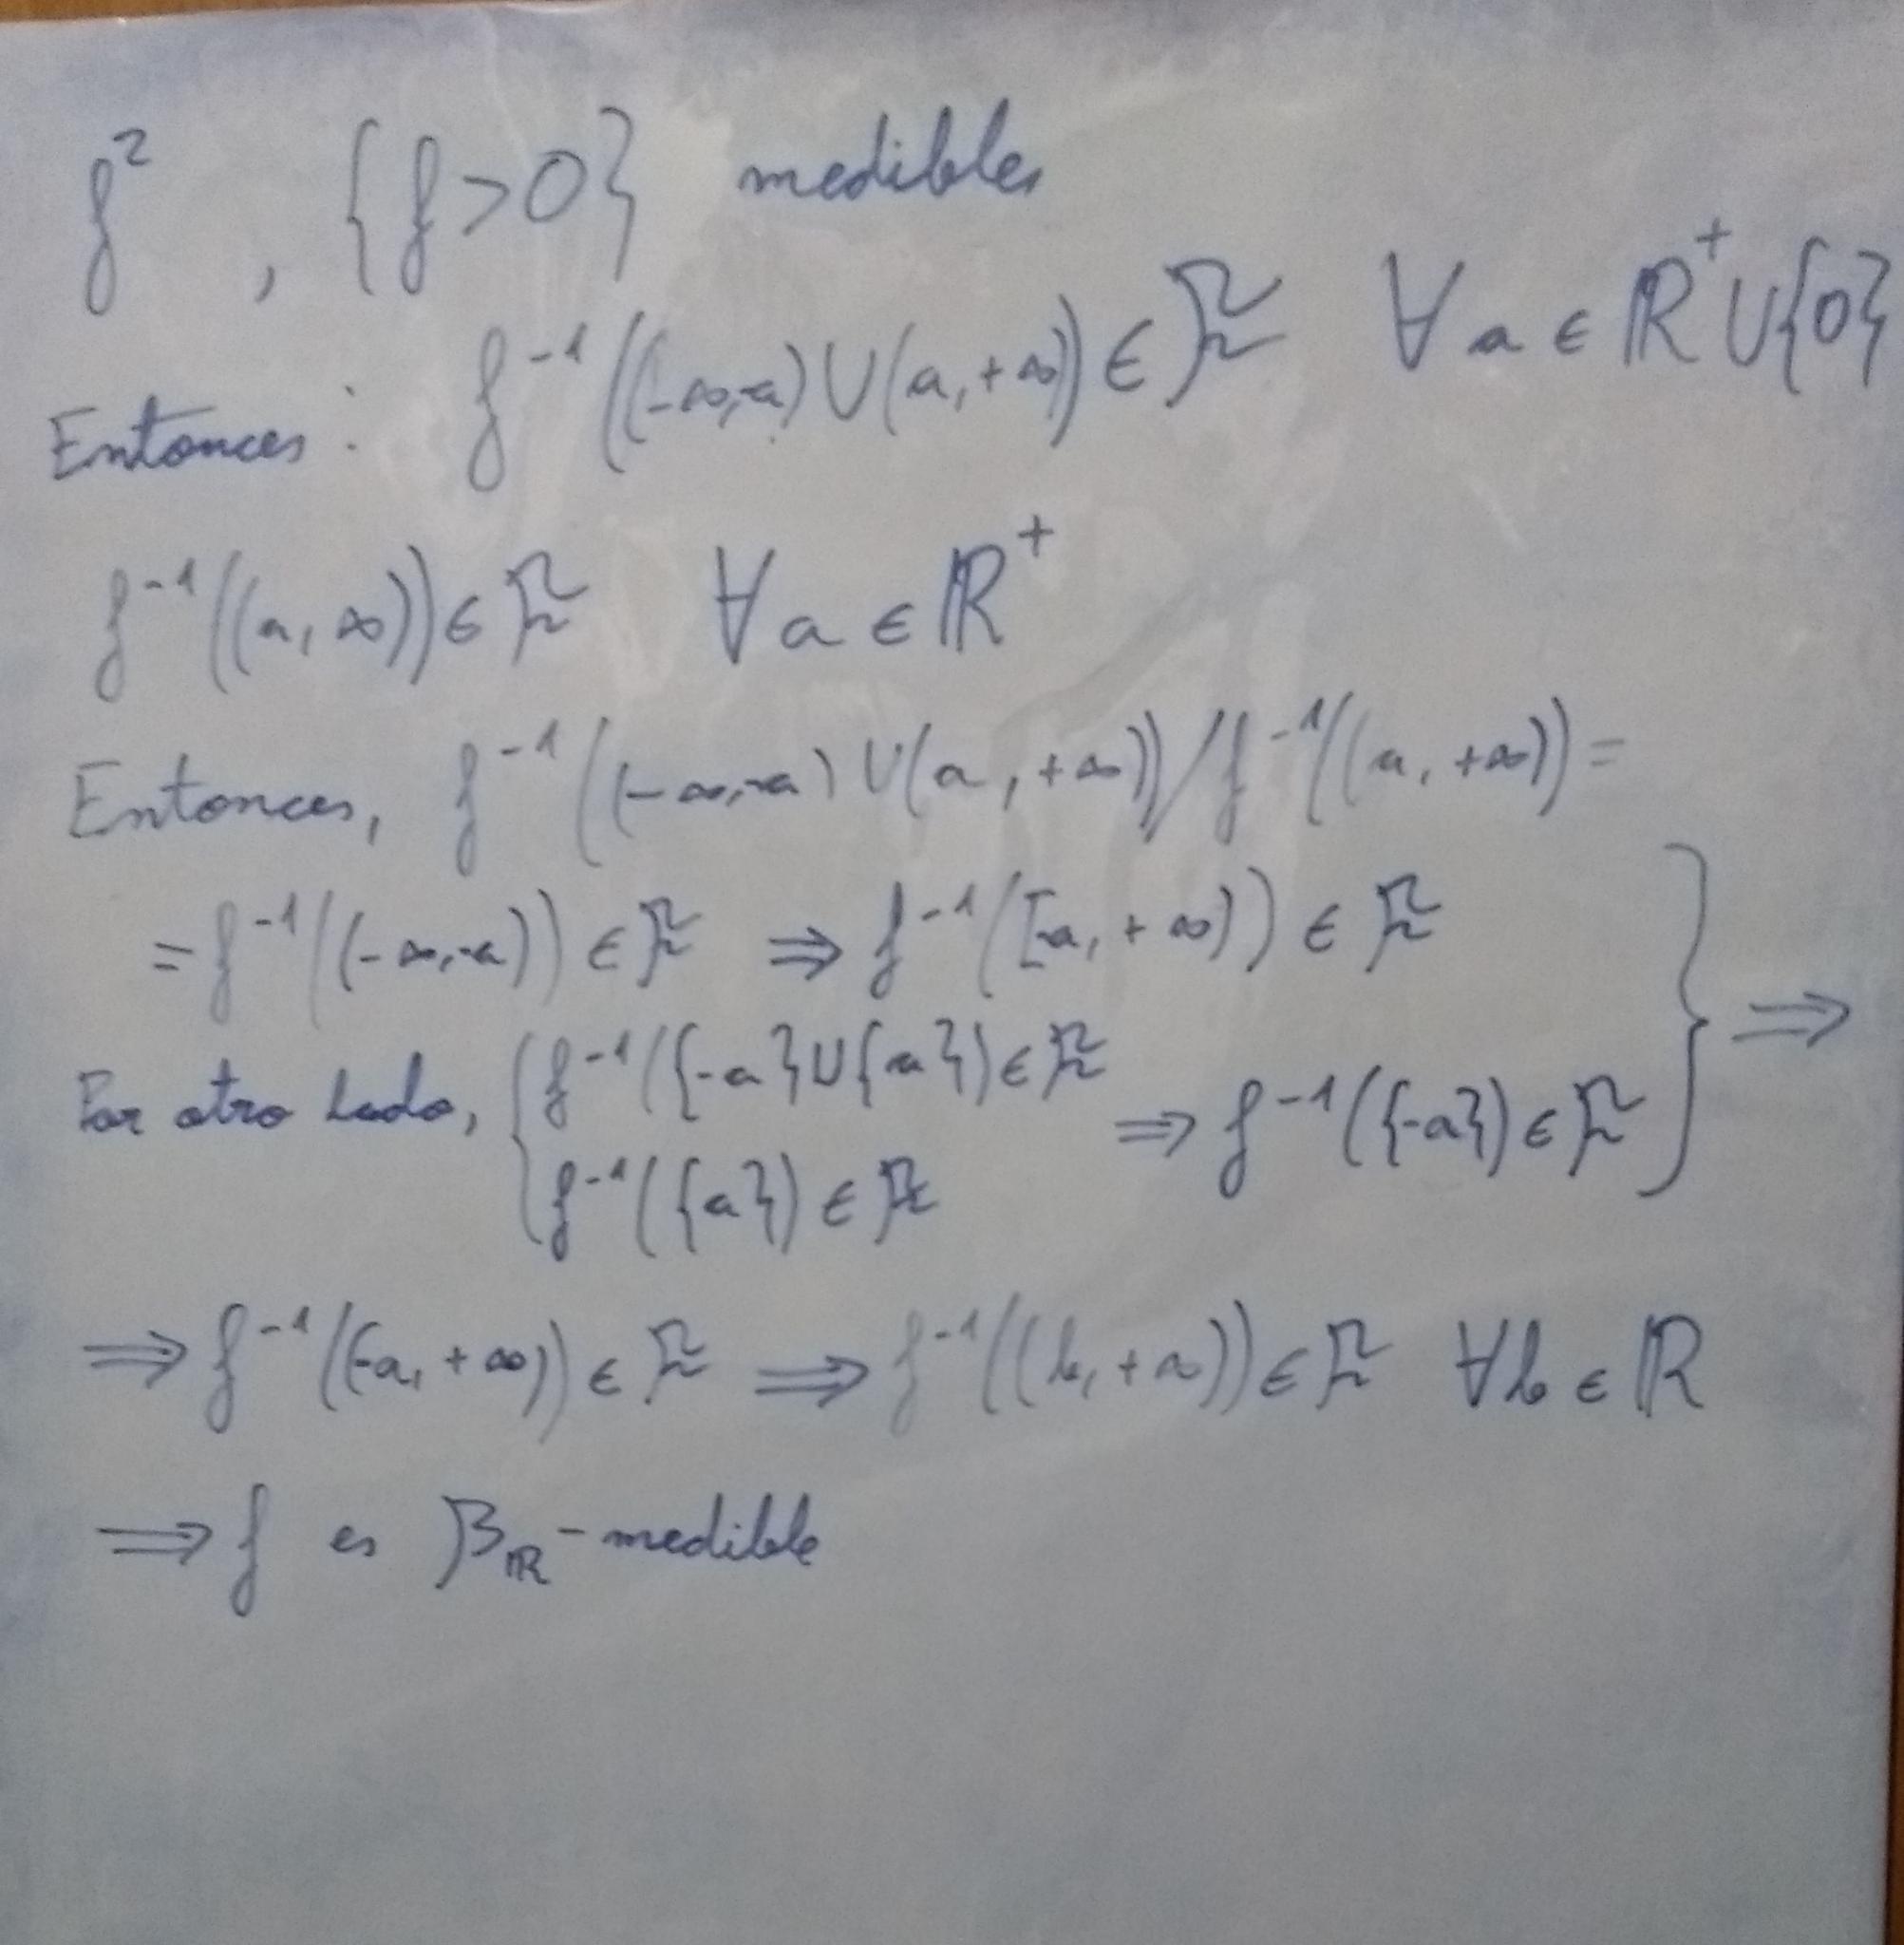 f² , {f>0} medibles
Entonces: f⁻¹((-∞,-a)∪(a,+∞)) ∈ 𝓡 ∀a ∈ ℝ⁺∪{0}
f⁻¹((a,∞)) ∈ 𝓡 ∀a ∈ ℝ⁺
Entonces, f⁻¹((-∞,-a)∪(a,+∞))/f⁻¹((a,+∞)) =
= f⁻¹((-∞,-a)) ∈ 𝓡 ⇒ f⁻¹([-a,+∞)) ∈ 𝓡
Por otro lado, { f⁻¹({-a}∪{a}) ∈ 𝓡
f⁻¹({a}) ∈ 𝓡 ⇒ f⁻¹({-a}) ∈ 𝓡 } ⇒
⇒ f⁻¹((-a,+∞)) ∈ 𝓡 ⇒ f⁻¹((b,+∞)) ∈ 𝓡 ∀b ∈ ℝ
⇒ f es β_ℝ-medible